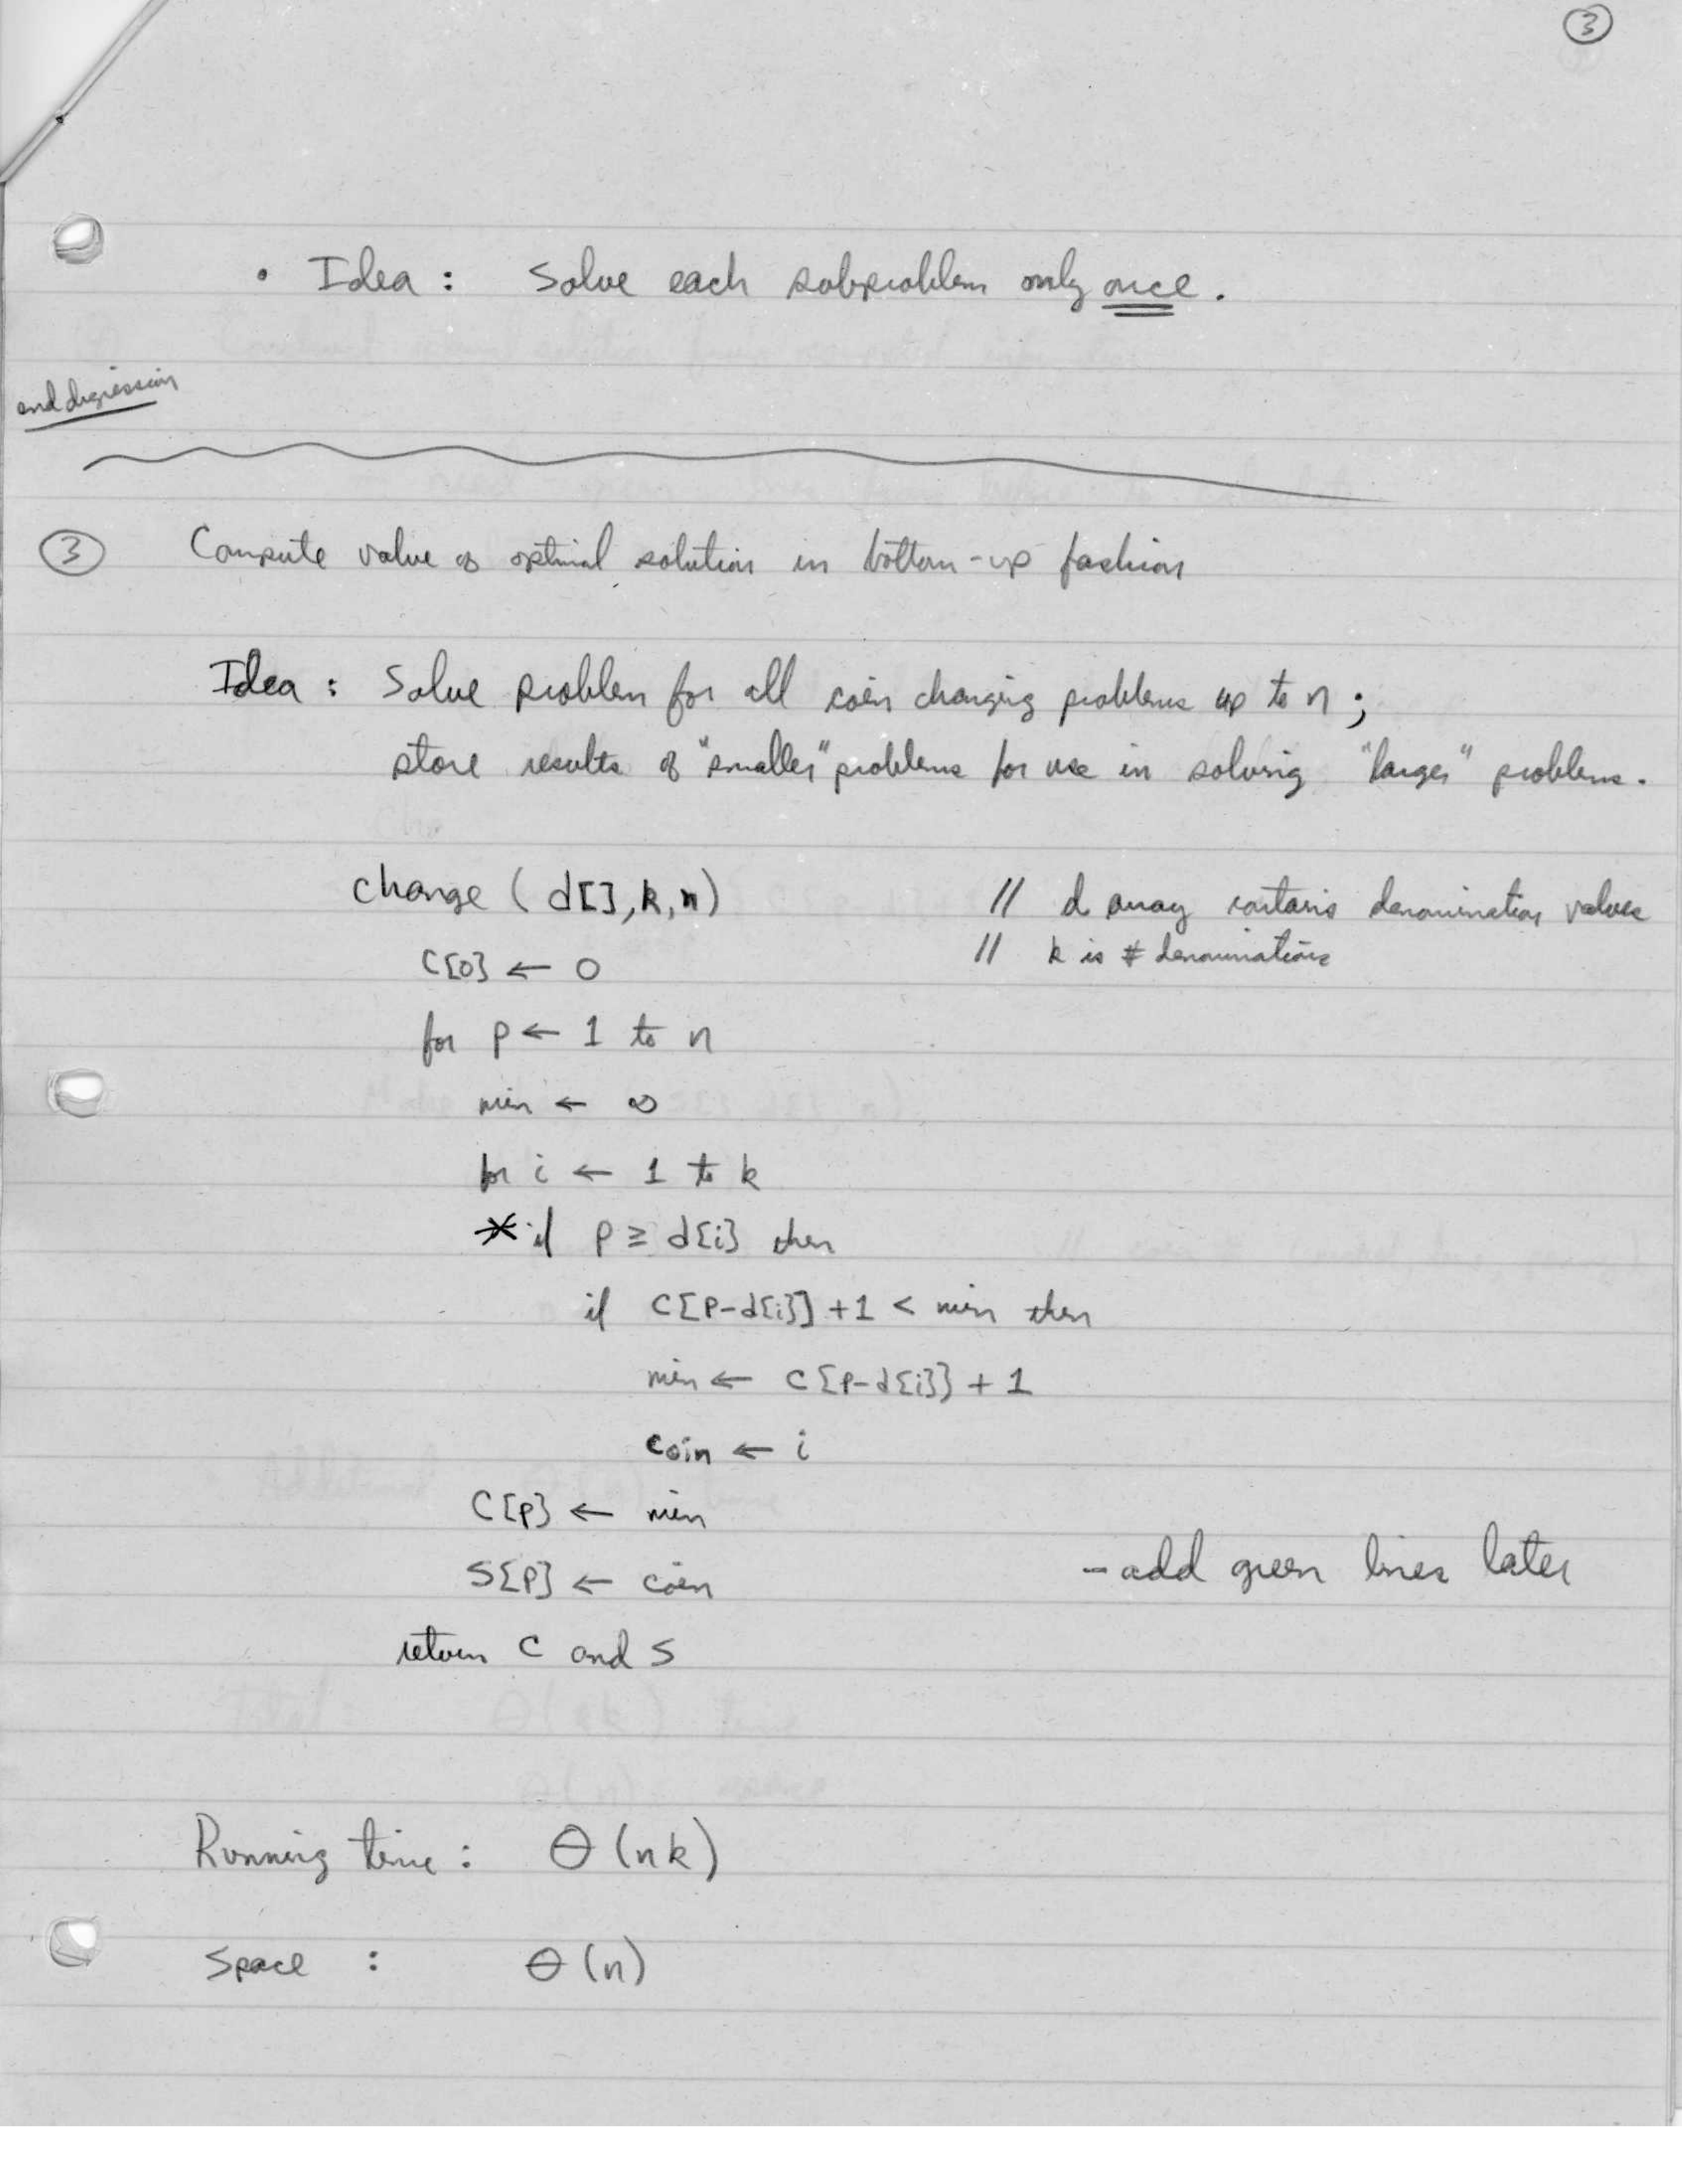 3
• Idea : Solve each subproblem only once.
end digression
3 Compute value of optimal solution in bottom-up fashion
Idea : Solve problem for all coin changing problems up to n ;
store results of "smaller" problems for use in solving "larger" problems.
change ( d[], k, n) // d array contains denomination values
C[0] ← 0 // k is # denominations
for p ← 1 to n
min ← ∞
for i ← 1 to k
* if p ≥ d[i] then
if C[p-d[i]] + 1 < min then
min ← C[p-d[i]] + 1
coin ← i
C[p] ← min
S[p] ← coin - add green lines later
return C and S
Running time : Θ(nk)
Space : Θ(n)